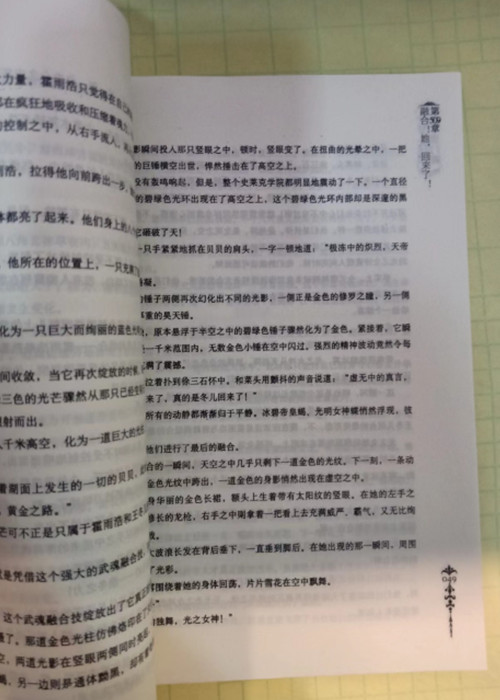 力量，霍雨浩只觉得在自己
都在疯狂地吸收和压缩着
的控制之中，从右手流入，
雨浩，拉得他向前跨出一步，
体都亮了起来。他们身上的
，他所在的位置上，一只
化为一只巨大而绚丽的蓝色光
间收敛，当它再次绽放的时候，
三色的光芒骤然从那只已经
照射而出。
千米高空，化为一道巨大的光
着湖面上发生的一切的贝贝，
，黄金之路。”
芒可不正是只属于霍雨浩和王冬
是凭借这个强大的武魂融合技，
这个武魂融合技绽放出了它真正
了。那道金色光柱仿佛烙印在了
空，两道光影在竖眼两侧同时亮起
，另一边则是通体黝黑，却有着
第509章
融合！她，回来了！
影瞬间投入那只竖眼之中，顿时，竖眼变了。在扭曲的光晕之中，一把
的巨锤横空出世，悍然捶击在了高空之上。
没有轰鸣响起，但是，整个史莱克学院都明显地震动了一下。一个直径
的碧绿色光环出现在了高空之上，这个碧绿色光环内部却是深邃的黑
它砸破了天！
一只手紧紧地抓在贝贝的肩头，一字一顿地道：“极冻中的炽烈，天帝
凝。
的锤子两侧再次幻化出不同的光影，一侧正是金色的修罗之瞳，另一侧
厚重的昊天锤。
，原本是浮于半空之中的碧绿色锤子骤然化为了金色。紧接着，它瞬
一千米范围内，无数金色小锤在空中闪过。强烈的精神波动竟然令每
满了震撼。
泣着扑到徐三石怀中，和菜头用颤抖的声音说道：“虚无中的真言，
来了，真的是冬儿回来了！”
所有的动静都渐渐归于平静。冰碧帝皇蝎、光明女神蝶悄然浮现，彼
他们进行了最后的融合。
合的一瞬间，天空之中几乎只剩下一道金色的光纹。下一刻，一条动
金色光纹中跨出，一道金色的身影悄然出现在虚空之中。
身华丽的金色长裙，额头上生着带有太阳纹的竖眼，在她的左手之
修长的龙枪，右手之中则拿着一把看上去充满威严、霸气，又无比绚
波浪长发在背后垂下，一直垂到脚后。在她出现的那一瞬间，周围
了光彩。
围绕着她的身体回荡，片片雪花在空中飘舞。
独舞，光之女神！”
049